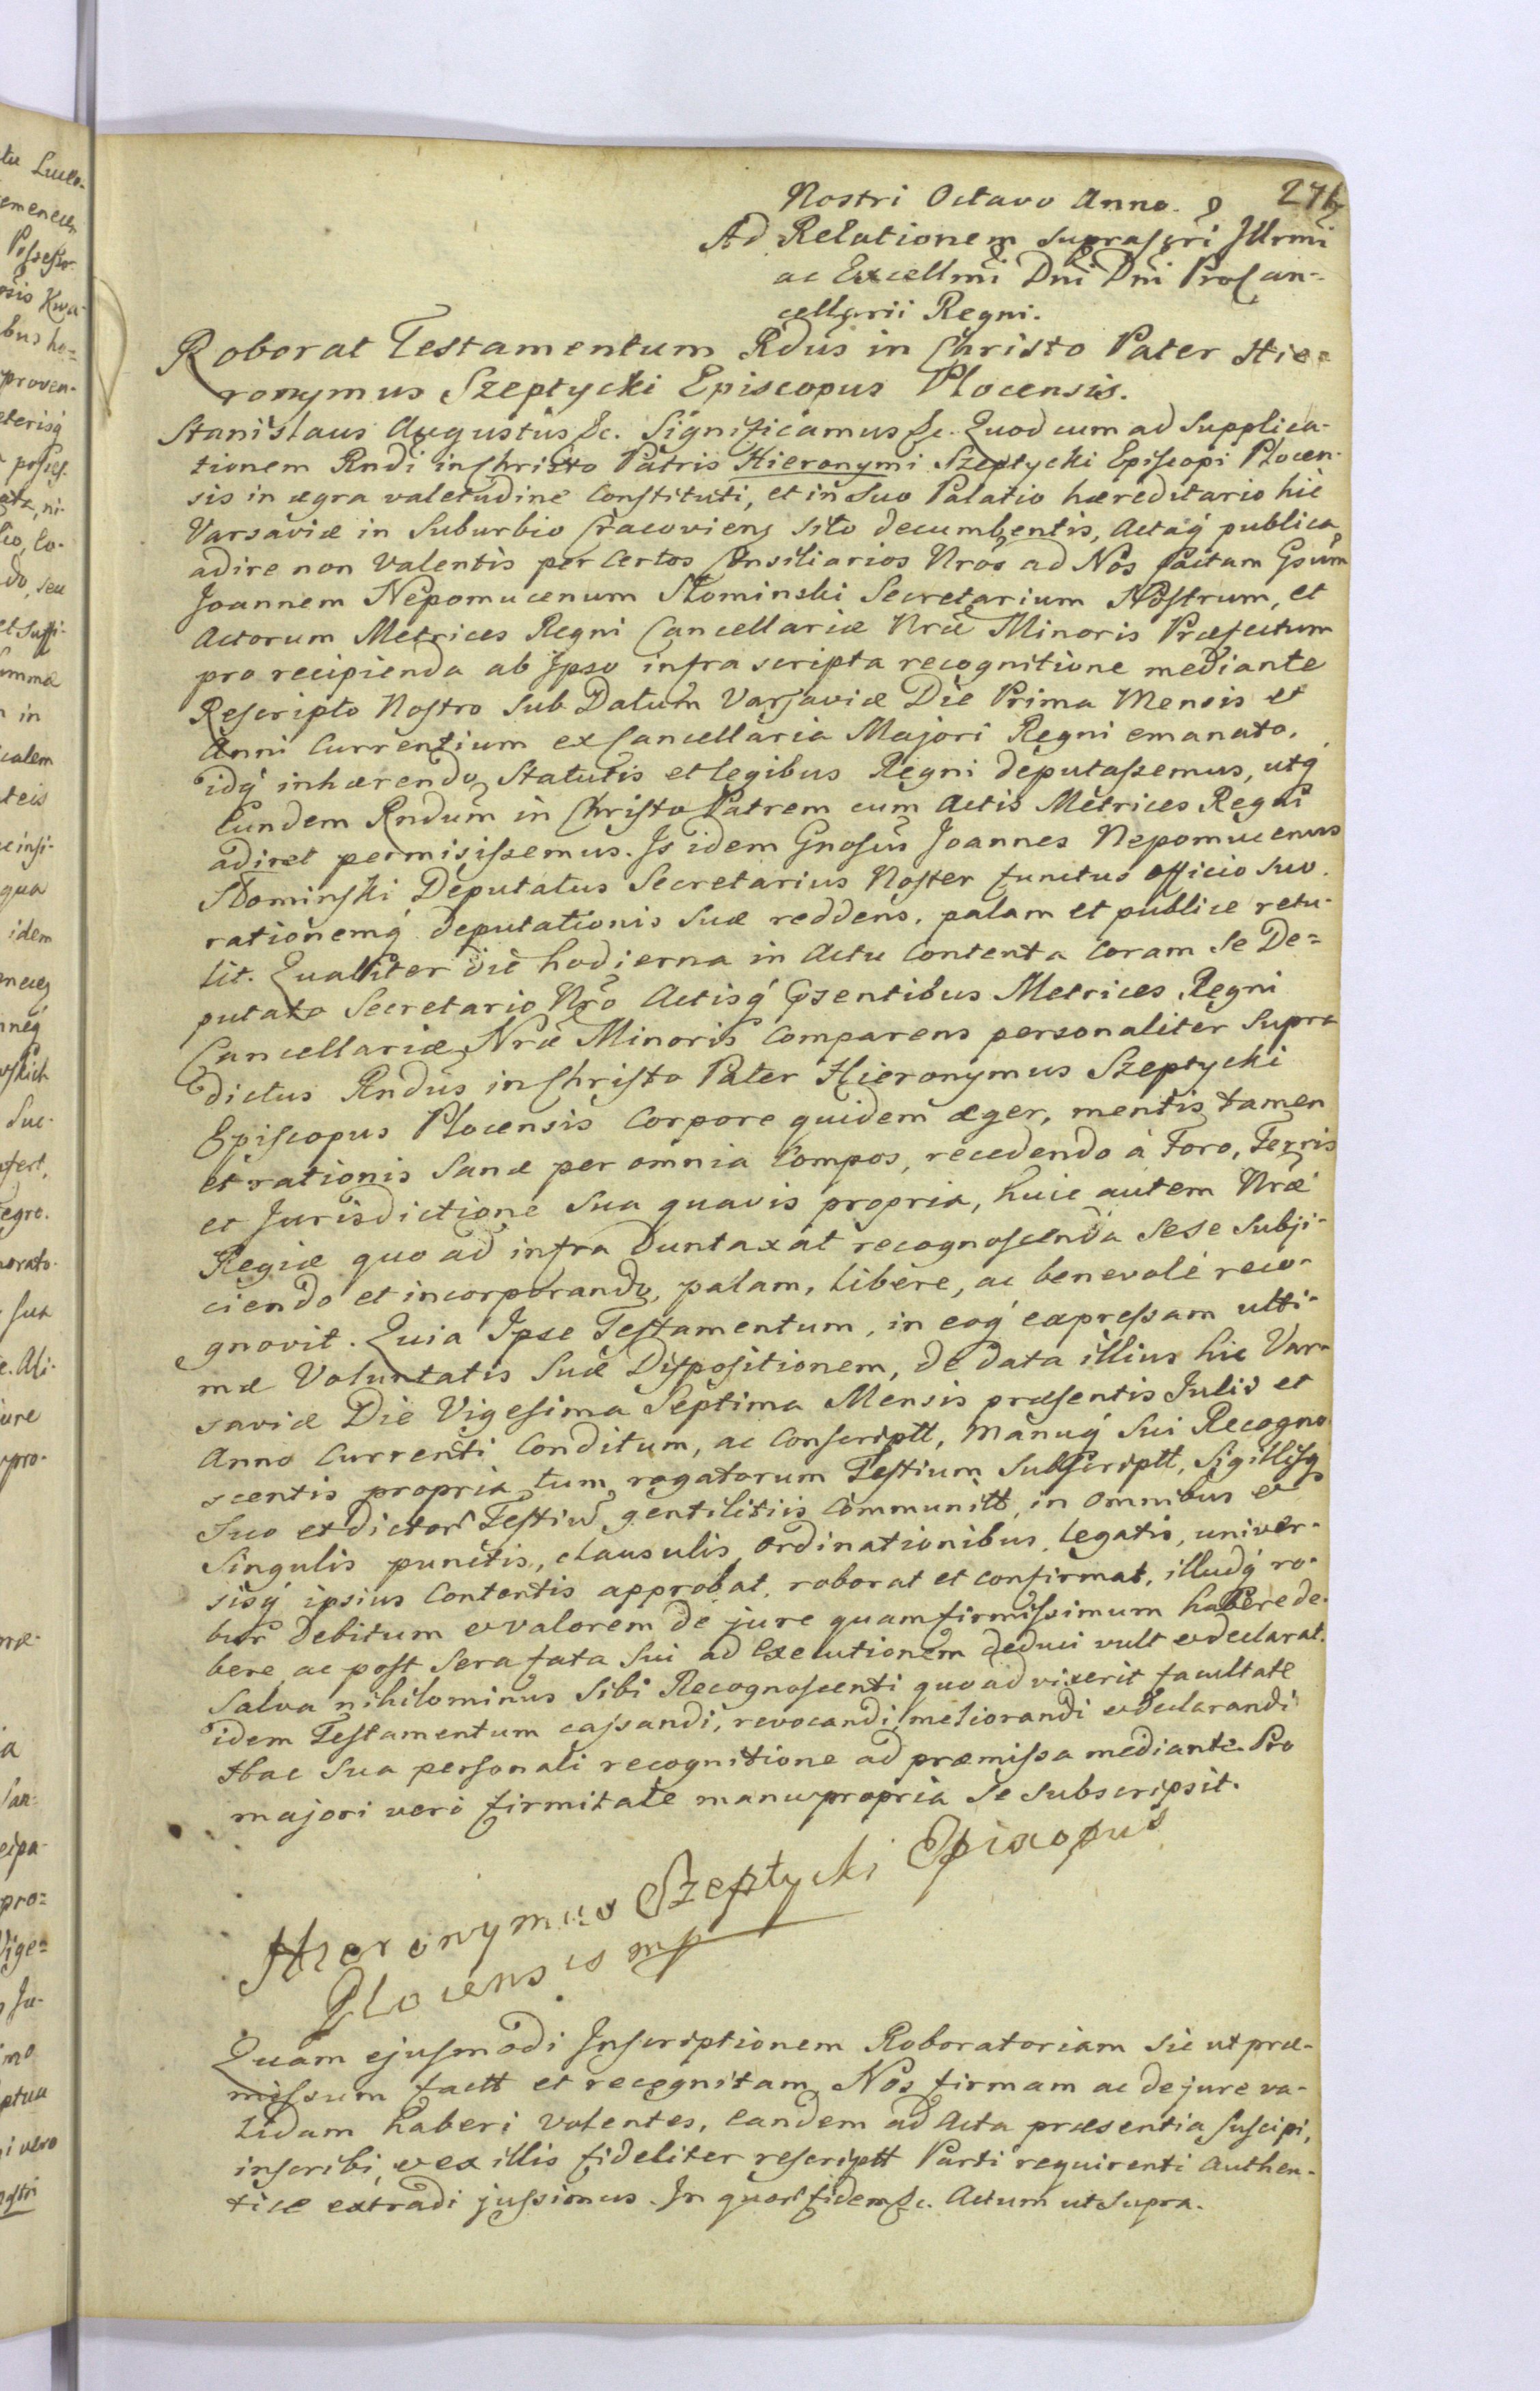 Nostri Octavo Anno.
Ad Relationem suprascri Illrmi
ac Excellmi Dni Dni Procan-
cellarii Regni.
Roborat Testamentum Rdus in Christo Pater Hie=
ronymus Szeptycki Episcopus Plocensis.
Stanislaus Augustus &c. Significamus &c. Quod cum ad Supplica-
tionem Rndi in Christo Patris Hieronymi Szeptycki Episcopi Plocen-
sis in ægra valetudine Constituti, et in Suo Palatio hæreditario hic
Varsaviæ in Suburbio Cracoviens sito decumbentis, Actaq́ publica
adire non Valentis per Certos Consiliarios Nros ad Nos factam Gsum
Joannem Nepomucenum Słominski Secretarium Nostrum, et
Actorum Metrices Regni Cancellariæ Nræ Minoris Præfectum
pro recipienda ab Ipso infra scripta recognitione mediante
Rescripto Nostro Sub Datum Varsaviæ Die Prima Mensis et
Anni Currentium ex Cancellaria Majori Regni emanato,
idq́ inhærendo Statutis et legibus Regni deputassemus, utq́
Eundem Rndum in Christo Patrem cum Actis Metrices Regni
adiret permisissemus. Is idem Gnosus Joannes Nepomucenus
Słominski Deputatus Secretarius Noster functus officio suo.
rationemq́ deputationis Suæ reddens, palam et publice retu-
lit. Qualiter die hodierna in Actu Contenta Coram Se De=
putato Secretario Nro Actisq́ Psentibus Metrices Regni
Cancellariæ Nræ Minoris Comparens personaliter Supra
dictus Rndus in Christo Pater Hieronymus Szeptycki
Episcopus Plocensis Corpore quidem æger, mentis tamen
et rationis Sanæ per omnia Compos, recedendo à Foro, Terris
et Jurisdictione Sua quavis propria, huic autem Nræ
Regiæ quo ad infra Duntaxat recognoscenda Sese Subji-
ciendo et incorporando, palam, libere, ac benevolè reco-
gnovit. Quia Ipse Testamentum, in eoq́ expressam ulti-
mæ Voluntatis Suæ Dispositionem, de data illius hic Var-
saviæ Die Vigesima Septima Mensis præsentis Julii et
Anno Currenti Conditum, ac Conscriptt, Manuq́ Sui Recogno
scentis propria tum rogatorum Testium Subscriptt, Sigillisq́
Suo et dictor Testiu gentilitiis Communitt, in omnibus et
Singulis punctis, clausulis, ordinationibus, legatis, univer-
sisq́ ipsius Contentis approbat, roborat et confirmat, illudq́ ro-
bur debitum et valorem de jure quam firmissimum habere de-
bere, ac post Sera fata Sui ad Executionem deduci vult et declarat.
Salva nihilominus Sibi Recognoscenti quo ad vixerit facultate
idem Testamentum cassandi, revocandi, meliorandi et declarandi
Hac Sua personali recognitione ad præmissa mediante. Pro
majori verò firmitate manu propria Se Subscripsit.
Hieronymus Szeptycki Episcopus
Plocensis mp
Quam ejusmodi Inscriptionem Roboratoriam Sic ut præ-
missum factt et recognitam Nos firmam ac de jure va-
lidam haberi Volentes, Eandem ad Acta præsentia Suscipi,
inscribi, et ex illis fideliter rescriptt Parti requirenti Authen-
tice extradi jussimus. In quor fidem &c. Actum ut Supra.